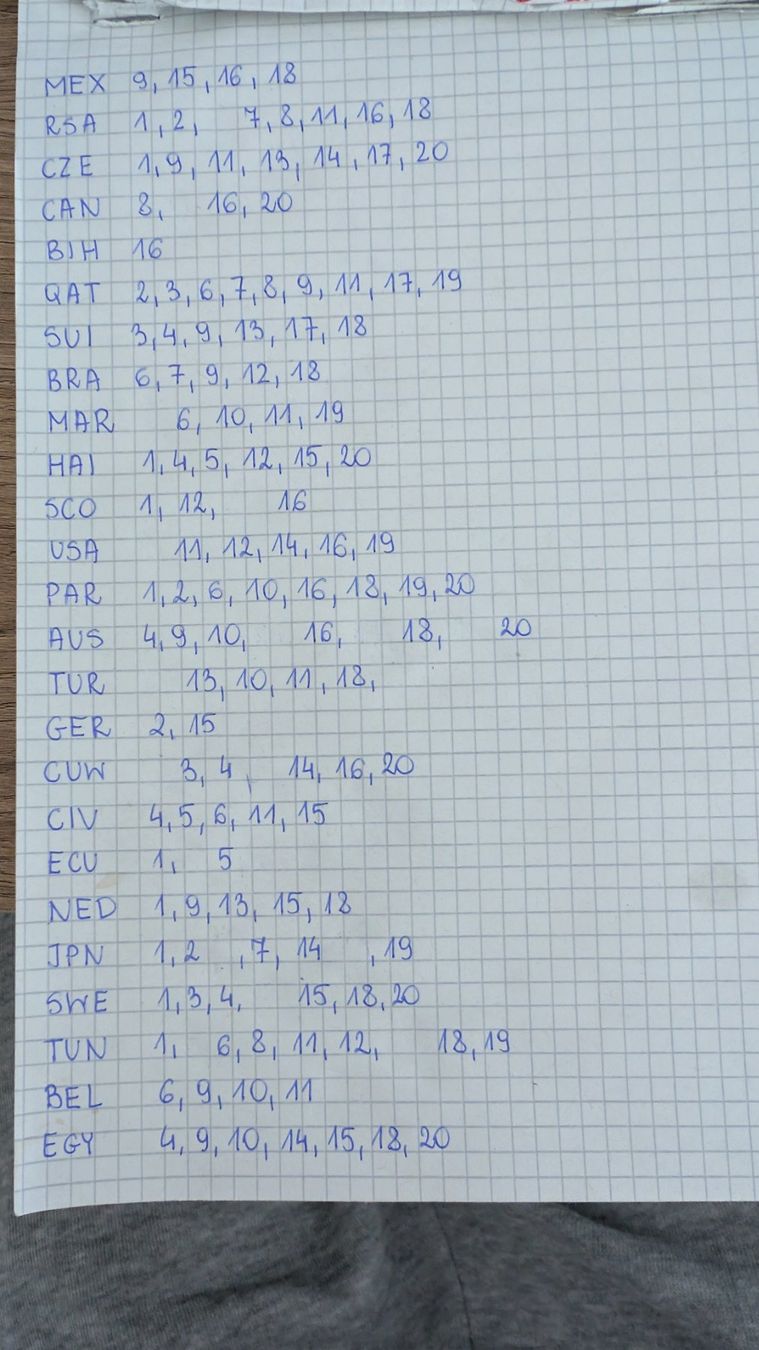 MEX 9, 15, 16, 18
RSA 1, 2, 7, 8, 11, 16, 18
CZE 1, 9, 11, 13, 14, 17, 20
CAN 8, 16, 20
BIH 16
QAT 2, 3, 6, 7, 8, 9, 11, 17, 19
SUI 3, 4, 9, 13, 17, 18
BRA 6, 7, 9, 12, 18
MAR 6, 10, 11, 19
HAI 1, 4, 5, 12, 15, 20
SCO 1, 12, 16
USA 11, 12, 14, 16, 19
PAR 1, 2, 6, 10, 16, 18, 19, 20
AUS 4, 9, 10, 16, 18, 20
TUR 13, 10, 11, 18,
GER 2, 15
CUW 3, 4, 14, 16, 20
CIV 4, 5, 6, 11, 15
ECU 1, 5
NED 1, 9, 13, 15, 18
JPN 1, 2 , 7, 14 , 19
SWE 1, 3, 4, 15, 18, 20
TUN 1, 6, 8, 11, 12, 18, 19
BEL 6, 9, 10, 11
EGY 4, 9, 10, 14, 15, 18, 20